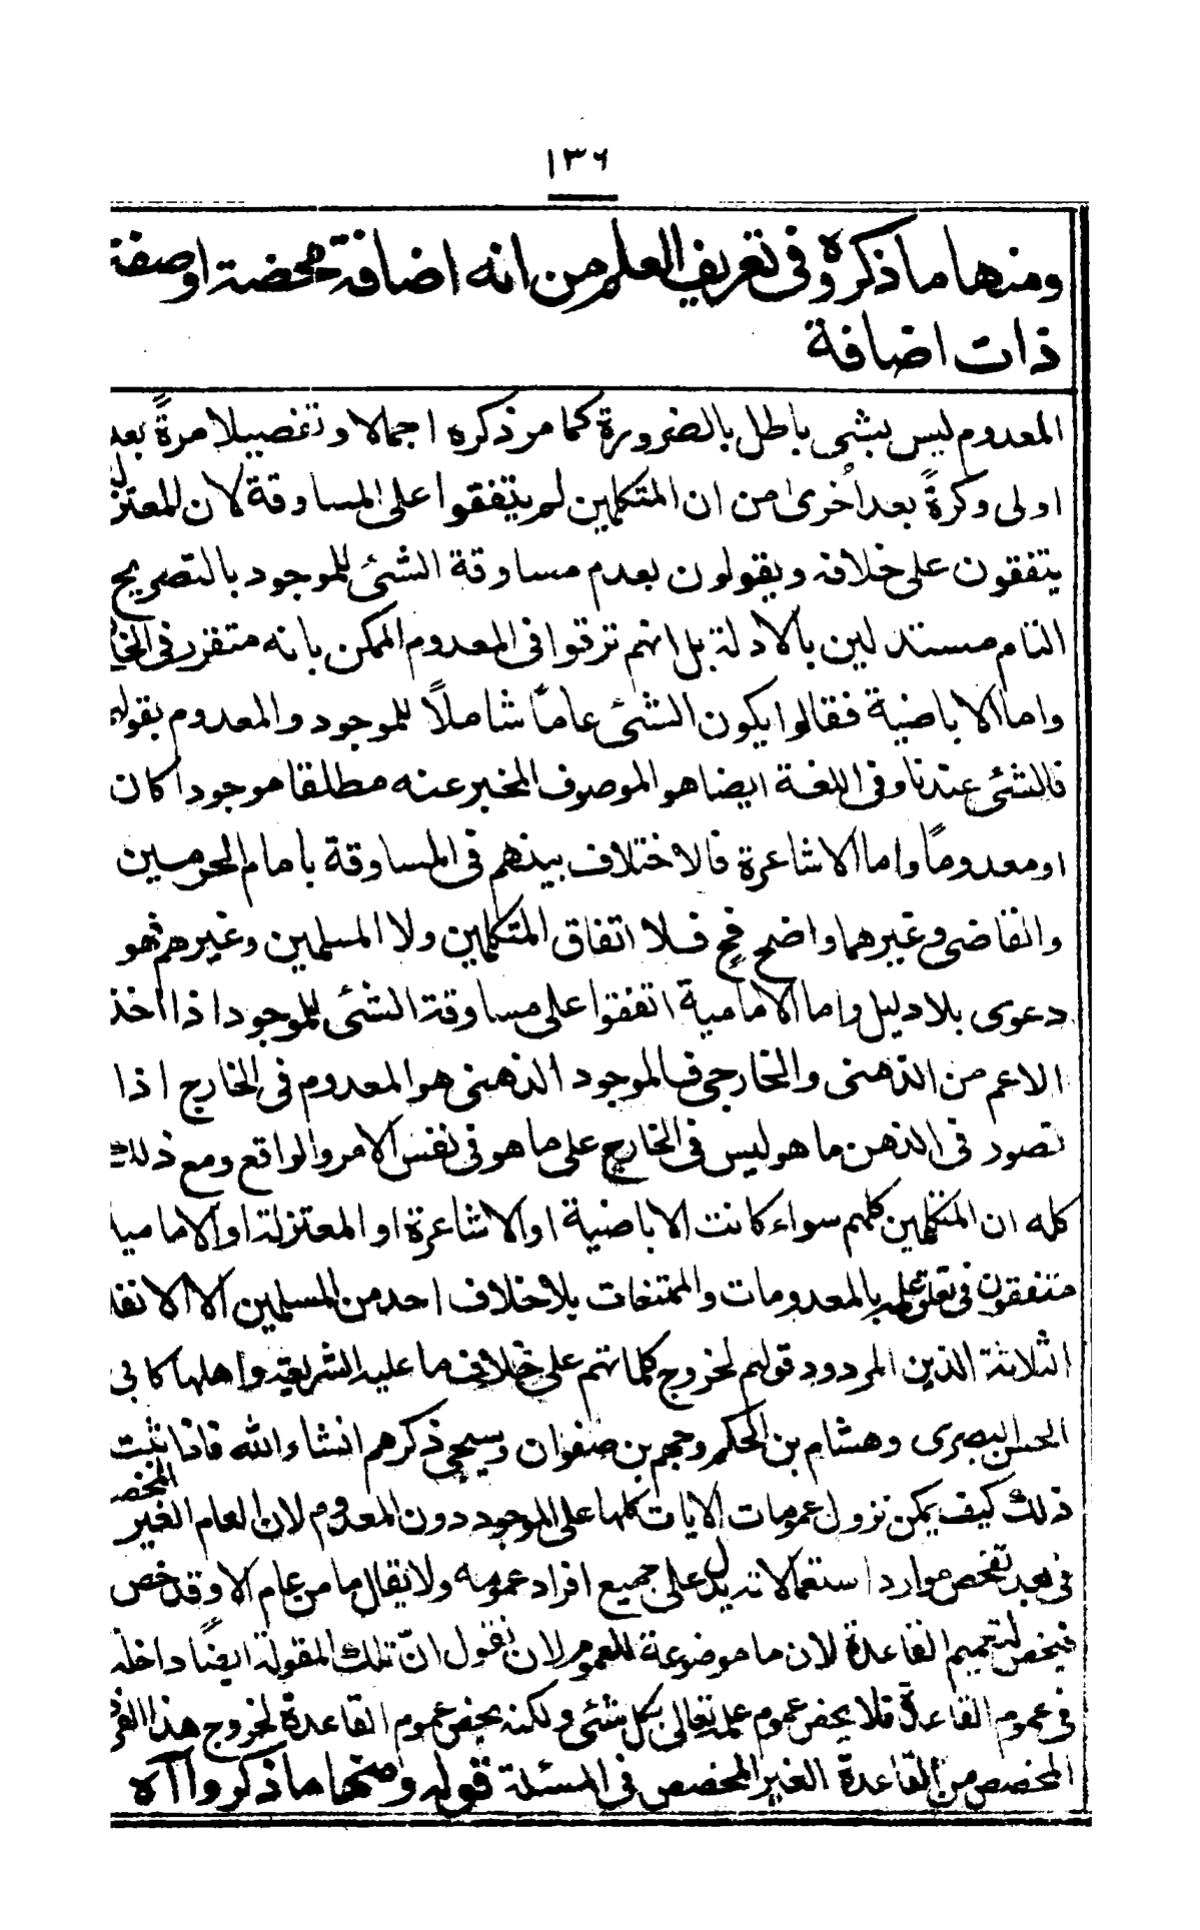 ١٣٦
ومنها ما ذكروه فى تعريف العلم من انه اضافة محضة او صفة
ذات اضافة
المعدوم ليس بشى باطل بالضرورة كما مر ذكره اجمالا وتفصيلا مرةً بعد
اولى وكرةً بعد اُخرى من ان المتكلمين لم يتفقوا على المساوقة لان المعتزل
يتفقون على خلافه ويقولون بعدم مساوقة الشئ للموجود بالتصريح
التام مستدلين بالادلة بل انهم ترقوا فى المعدوم الممكن بانه متقرر فى الخا
واما الاباضية فقالوا يكون الشئ عامّاً شاملاً للموجود والمعدوم بقولهم
فالشئ عندنا وفى اللغة ايضا هو الموصوف المخبر عنه مطلقا موجودا كان
او معدوماً واما الاشاعرة فالاختلاف بينهم فى المساوقة بامام الحرمين
والقاضى وغيرهما واضح فح فلا اتفاق المتكلمين ولا المسلمين وغيرهم فهو
دعوى بلا دليل واما الامامية اتفقوا على مساوقة الشئ للموجود اذا اخذ
الاعم من الذهنى والخارجى فالموجود الذهنى هو المعدوم فى الخارج اذا
تصور فى الذهن ما هو ليس فى الخارج على ما هو فى نفس الامر والواقع ومع ذلك
كله ان المتكلمين كلهم سواء كانت الاباضية او الاشاعرة او المعتزلة او الاماميا
متفقون فى تعلق علمه بالمعدومات والممتنعات بلا خلاف احد من المسلمين الا الانفا
الثلاثة الذين المردود قولهم لخروج كلماتهم على خلاف ما عليه الشريعة واهلها كابى
الحسن البصرى وهشام بن الحكم وجهم بن صفوان وسيجئ ذكرهم انشاء الله فاذا ثبت
ذلك كيف يمكن نزول عمومات الايات كلها على الموجود دون المعدوم لان العام الغير المخصص
فى بعد تفحص موارد استعمالاته يدل على جميع افراد عمومه ولا يقال ما من عام الا وقد خص
فيخص لتعميم القاعدة لان ما موضوعة للعموم لان نقول انّ تلك المقولة ايضًا داخلة
فى عموم القاعدة فلا يخص عموم علمه تعالى بكل شئى ولكنه يخص عموم القاعدة لخروج هذا الفرد
المخصص من القاعدة الغير المخصص فى المسئلة قوله ومنها ما ذكروا آه